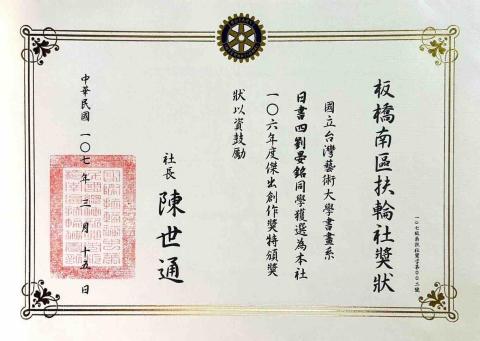 板橋南區扶輪社獎狀
國立台灣藝術大學書畫系
日書四劉晏銘同學獲選為本社
一〇六年度傑出創作獎特頒獎
狀以資鼓勵
社長 陳世通
中華民國 一〇七 年 三 月 十五 日